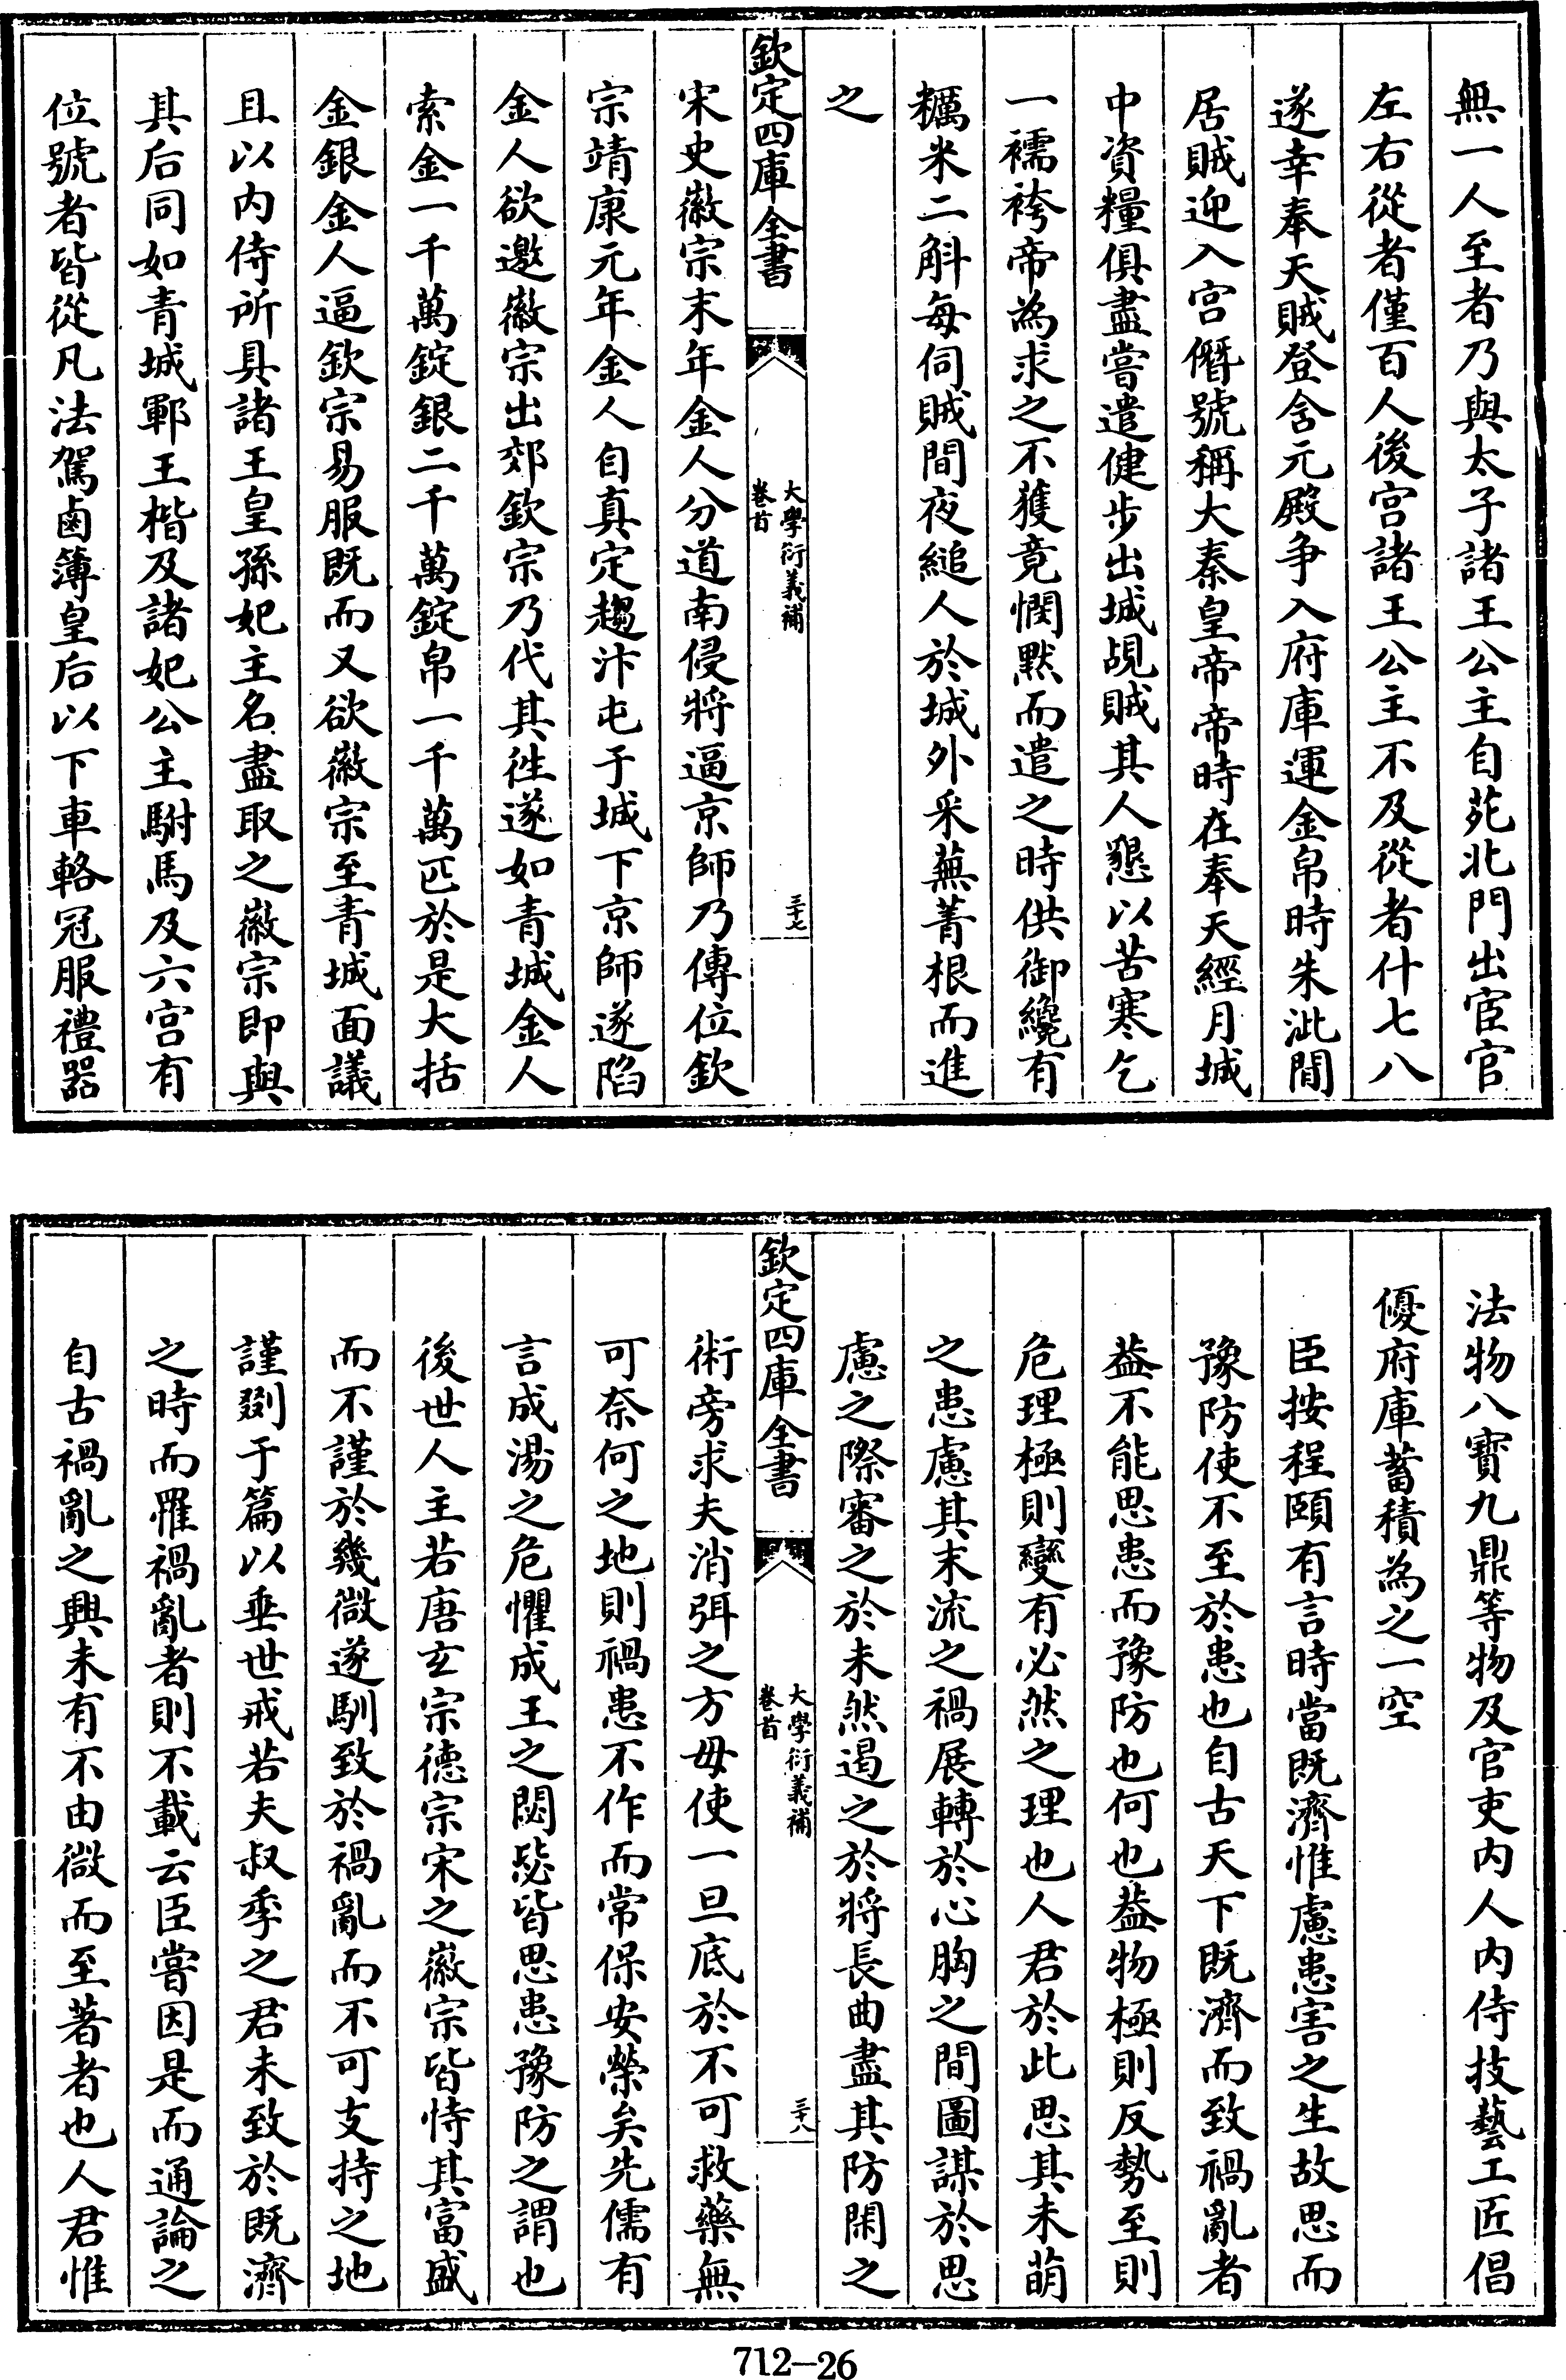 無一人至者乃與太子諸王公主自苑北門出宦官
左右從者僅百人後宫諸王公主不及從者什七八
遂幸奉天賊登含元殿争入府庫運金帛時朱泚閒
居賊迎入宫僭號稱大秦皇帝帝時在奉天經月城
中資糧俱盡嘗遣健步出城覘賊其人懇以苦寒乞
一襦袴帝為求之不獲竟憫默而遣之時供御纔有
糲米二斛每伺賊間夜縋人於城外采蕪菁根而進
之
欽定四庫全書
大學衍義補
卷首
三十七
宋史徽宗末年金人分道南侵將逼京師乃傳位欽
宗靖康元年金人自真定趨汴屯于城下京師遂陷
金人欲邀徽宗出郊欽宗乃代其往遂如青城金人
索金一千萬錠銀二千萬錠帛一千萬匹於是大括
金銀金人逼欽宗易服既而又欲徽宗至青城面議
且以内侍所具諸王皇孫妃主名盡取之徽宗即與
其后同如青城鄆王楷及諸妃公主駙馬及六宫有
位號者皆從凡法駕鹵簿皇后以下車輅冠服禮器
法物八寳九鼎等物及官吏内人内侍技藝工匠倡
優府庫蓄積為之一空
臣按程頤有言時當既濟惟慮患害之生故思而
豫防使不至於患也自古天下既濟而致禍亂者
葢不能思患而豫防也何也葢物極則反勢至則
危理極則變有必然之理也人君於此思其未萌
之患慮其末流之禍展轉於心胸之間圖謀於思
慮之際審之於未然遏之於將長曲盡其防閑之
欽定四庫全書
大學衍義補
卷首
三十八
術旁求夫消弭之方毋使一旦底於不可救藥無
可奈何之地則禍患不作而常保安榮矣先儒有
言成湯之危懼成王之閟毖皆思患豫防之謂也
後世人主若唐玄宗德宗宋之徽宗皆恃其富盛
而不謹於幾微遂馴致於禍亂而不可支持之地
謹劄于篇以垂世戒若夫叔季之君未致於既濟
之時而罹禍亂者則不載云臣嘗因是而通論之
自古禍亂之興未有不由微而至著者也人君惟
712—26